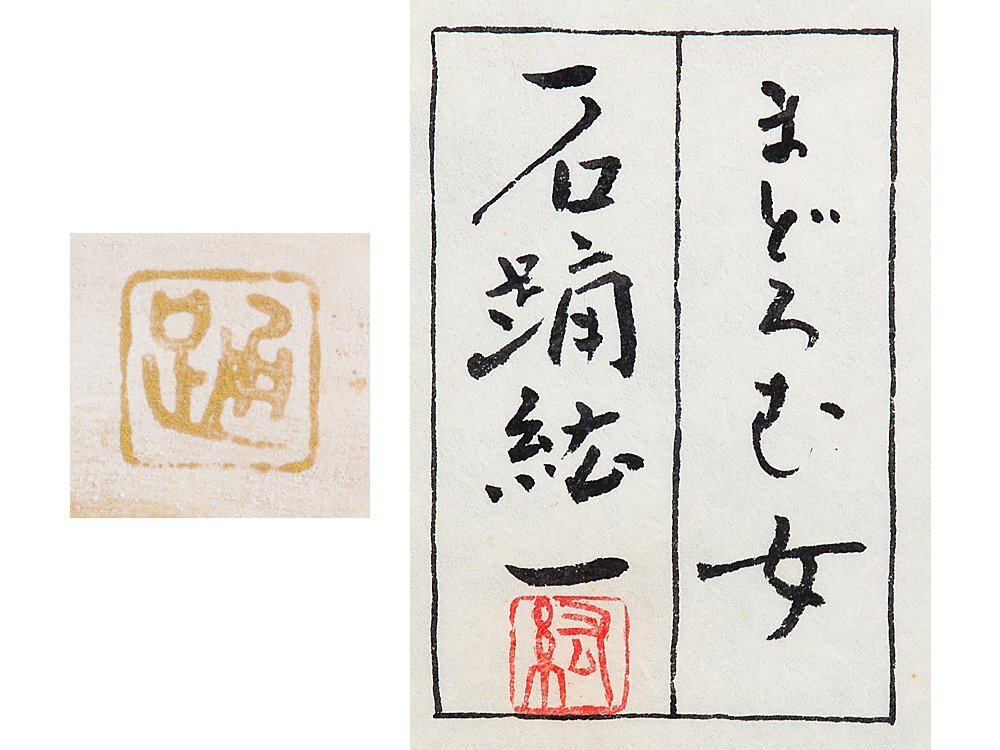 まどろむ女
石踊紘一
紘
踊